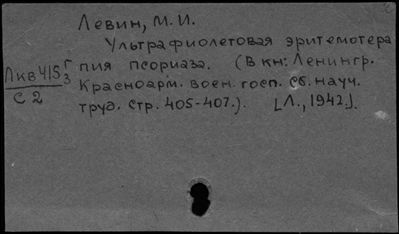 Левин, М. И.
Ультрафиолетовая эритемотера
пия псориаза. (В кн: Ленингр.
Красноарм. воен. госп. Сб. науч.
труд. стр. 405-407.). [Л., 1942.].
Лкв415 г
3
С 2